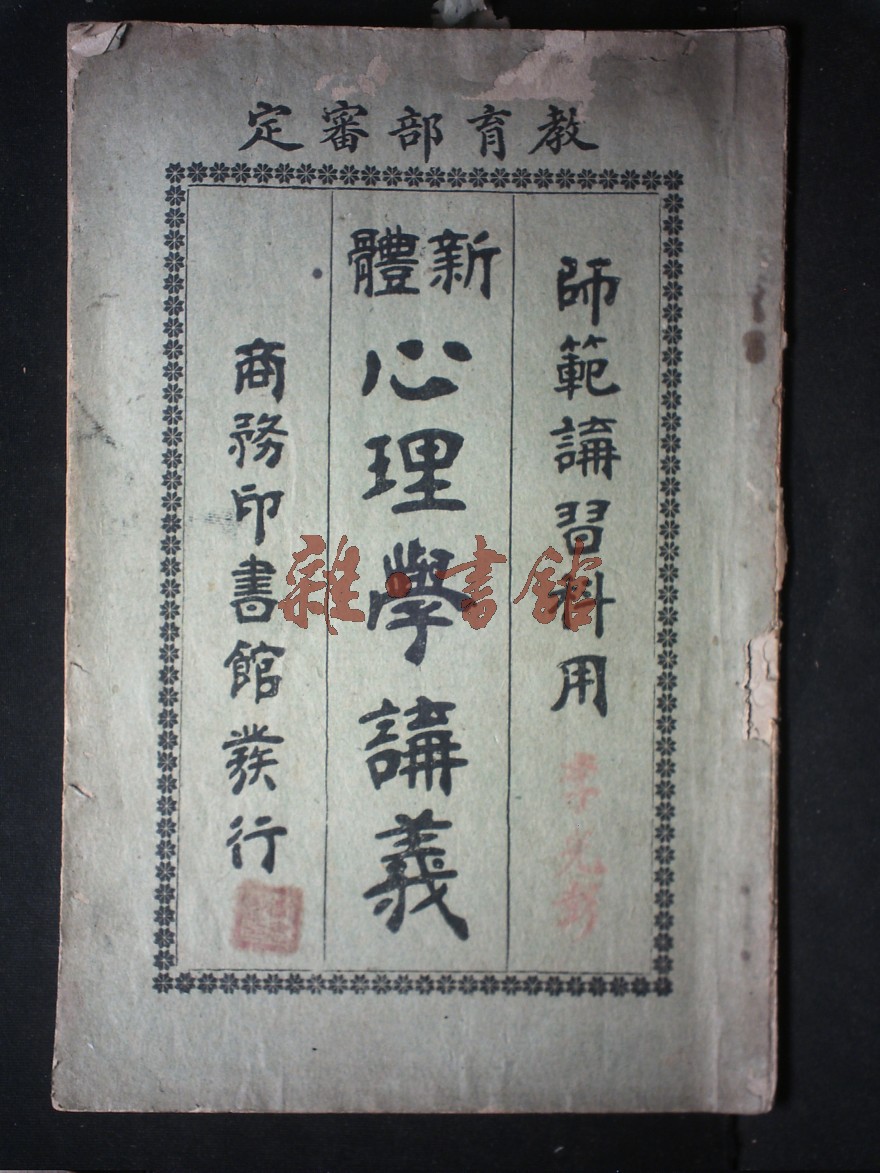 教育部審定
師範講習科用
新體
心理學講義
商務印書館發行
雜·書館